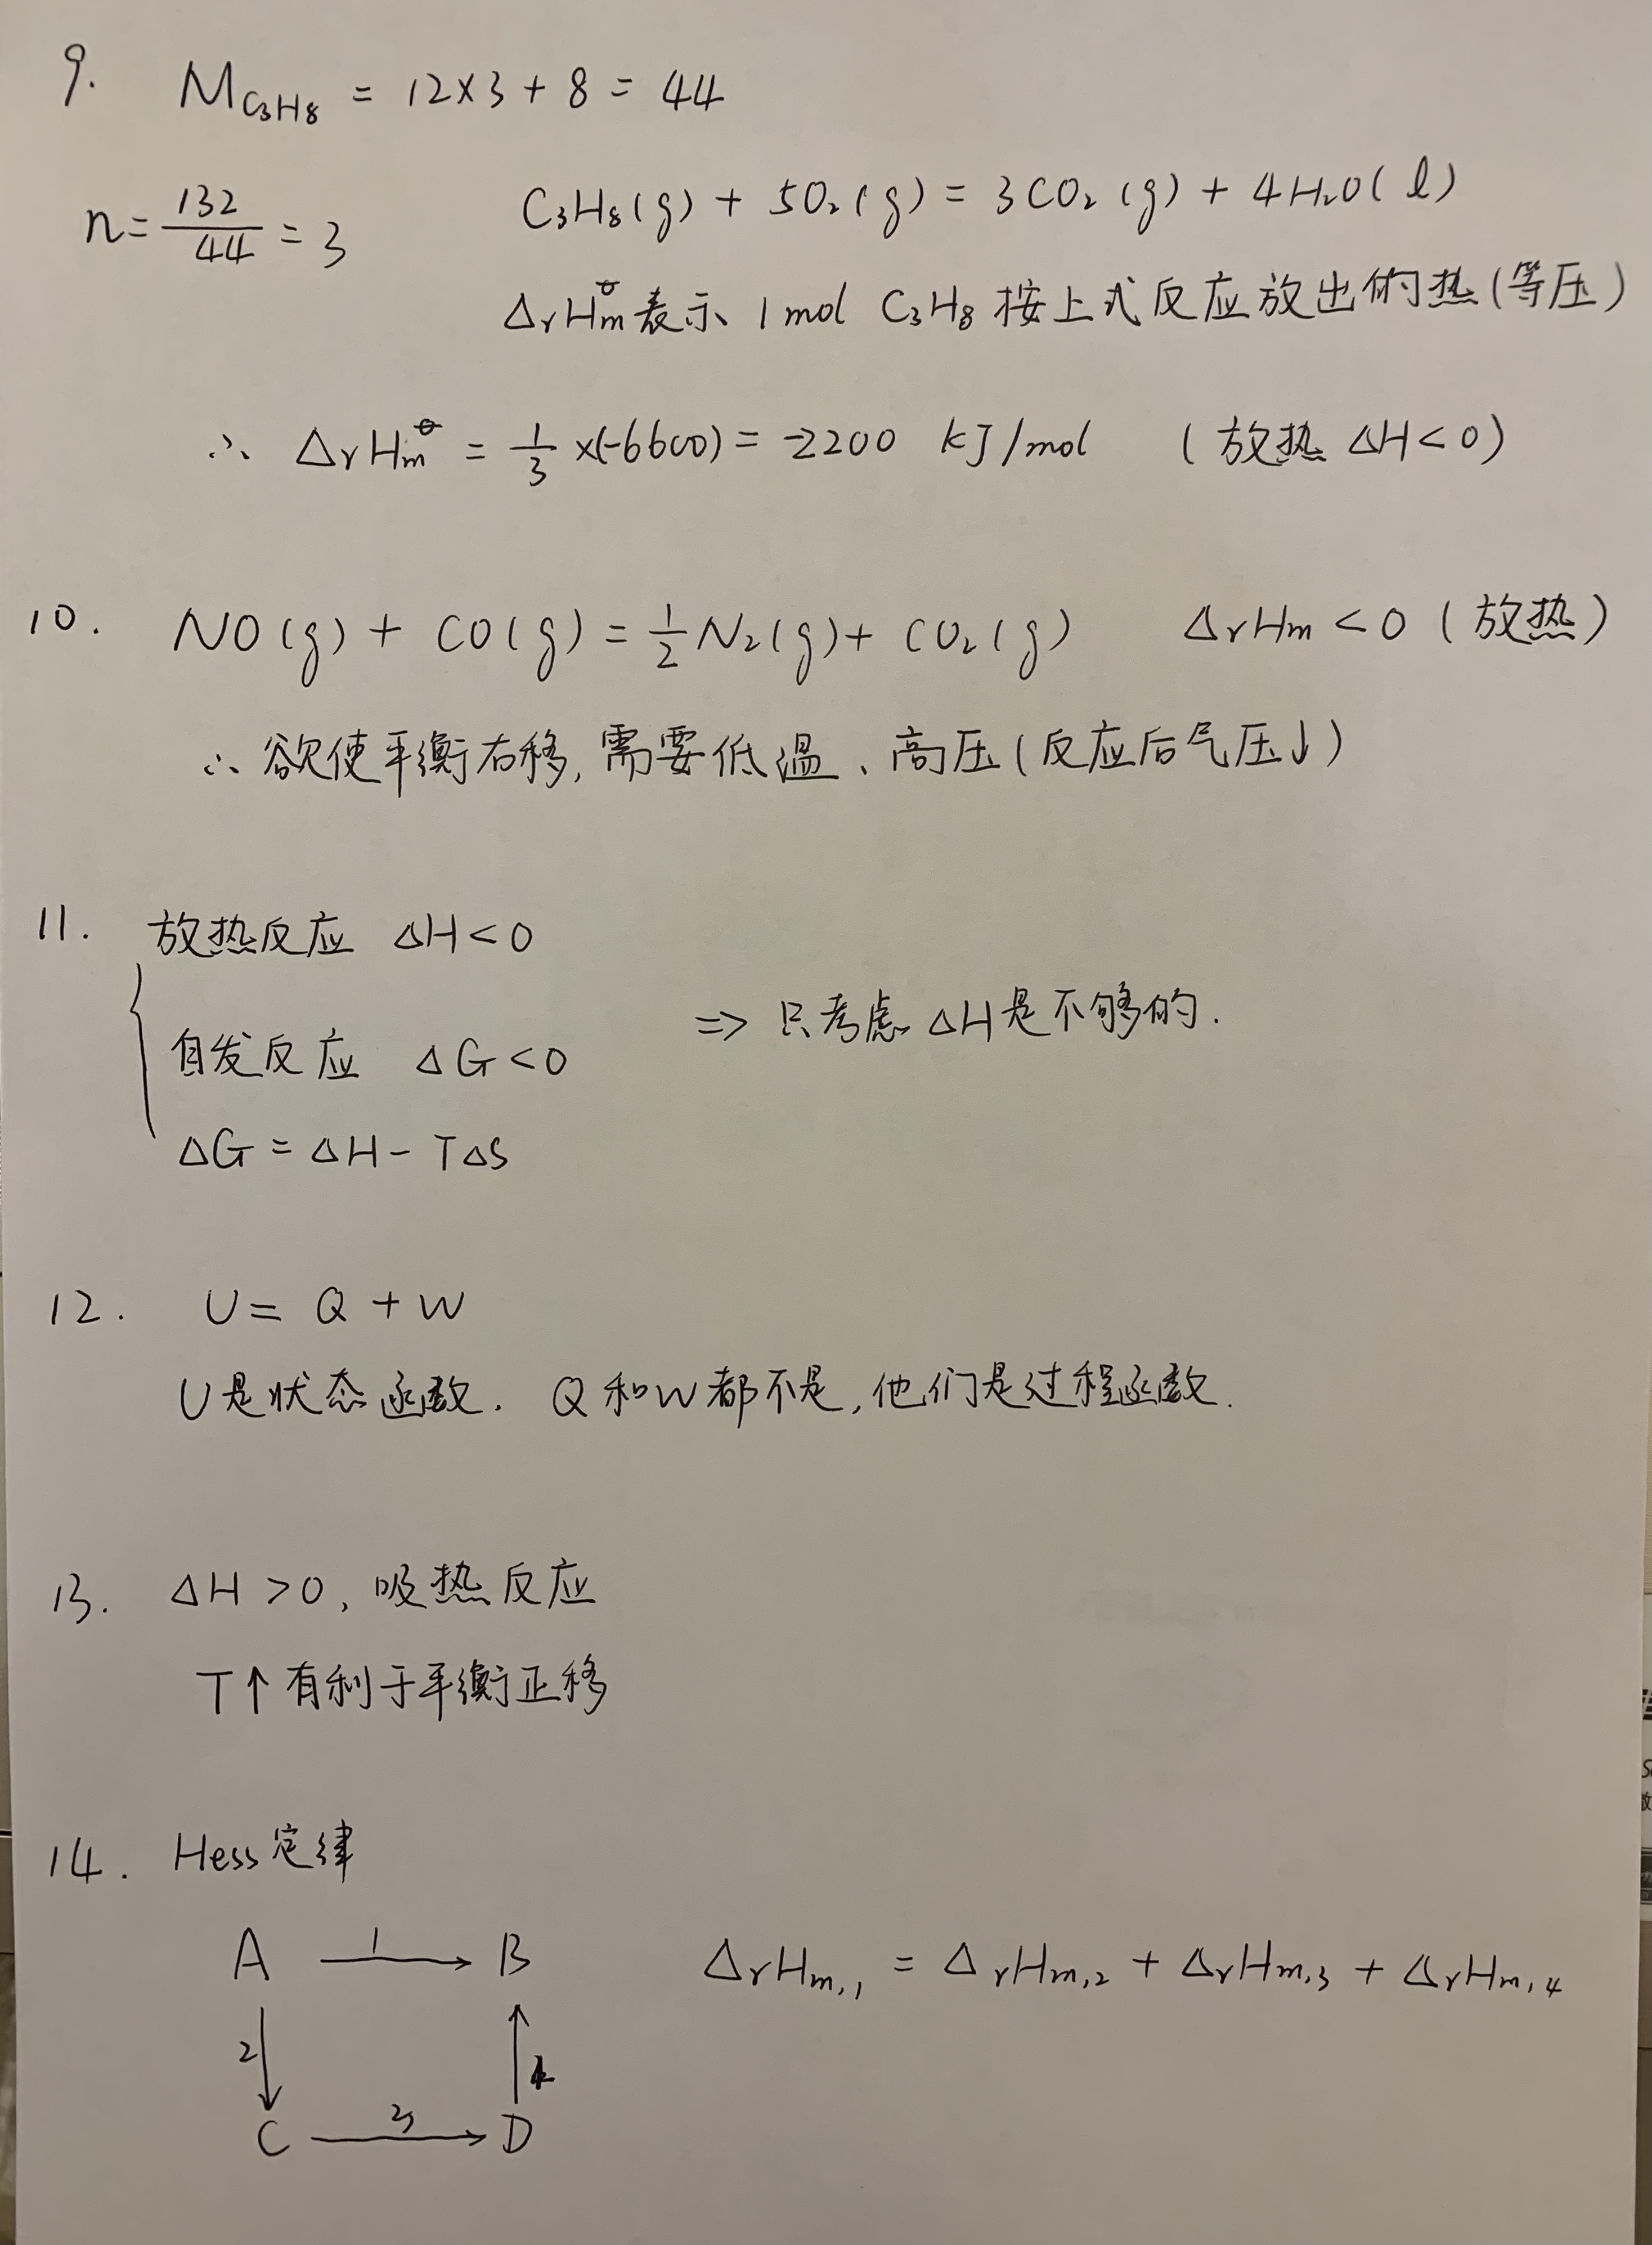 9. M_{C₃H₈} = 12×3 + 8 = 44
n = 132/44 = 3
C₃H₈(g) + 5O₂(g) = 3CO₂(g) + 4H₂O(l)
ΔrHm^θ 表示 1 mol C₃H₈ 按上式反应放出的热(等压)
∴ ΔrHm^θ = 1/3 ×(-6600) = -2200 kJ/mol (放热 ΔH<0)
10. NO(g) + CO(g) = 1/2 N₂(g) + CO₂(g) ΔrHm < 0 (放热)
∴ 欲使平衡右移, 需要低温、高压(反应后气压↓)
11. 放热反应 ΔH<0
自发反应 ΔG<0
⇒ 只考虑ΔH是不够的.
ΔG = ΔH - TΔS
12. U = Q + W
U是状态函数. Q和W都不是, 他们是过程函数.
13. ΔH > 0, 吸热反应
T↑有利于平衡正移
14. Hess定律
A —1→ B
ΔrHm,1 = ΔrHm,2 + ΔrHm,3 + ΔrHm,4
2↓ ↑4
C —3→ D